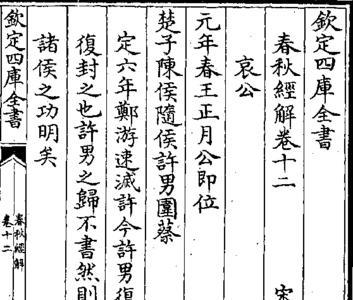 欽定四庫全書
春秋經解卷十二　宋
哀公
元年春王正月公即位
楚子陳侯隨侯許男圍蔡
定六年鄭游速滅許今許男復
復封之也許男之歸不書然則
諸侯之功明矣
欽定四庫全書
春秋經解
卷十二